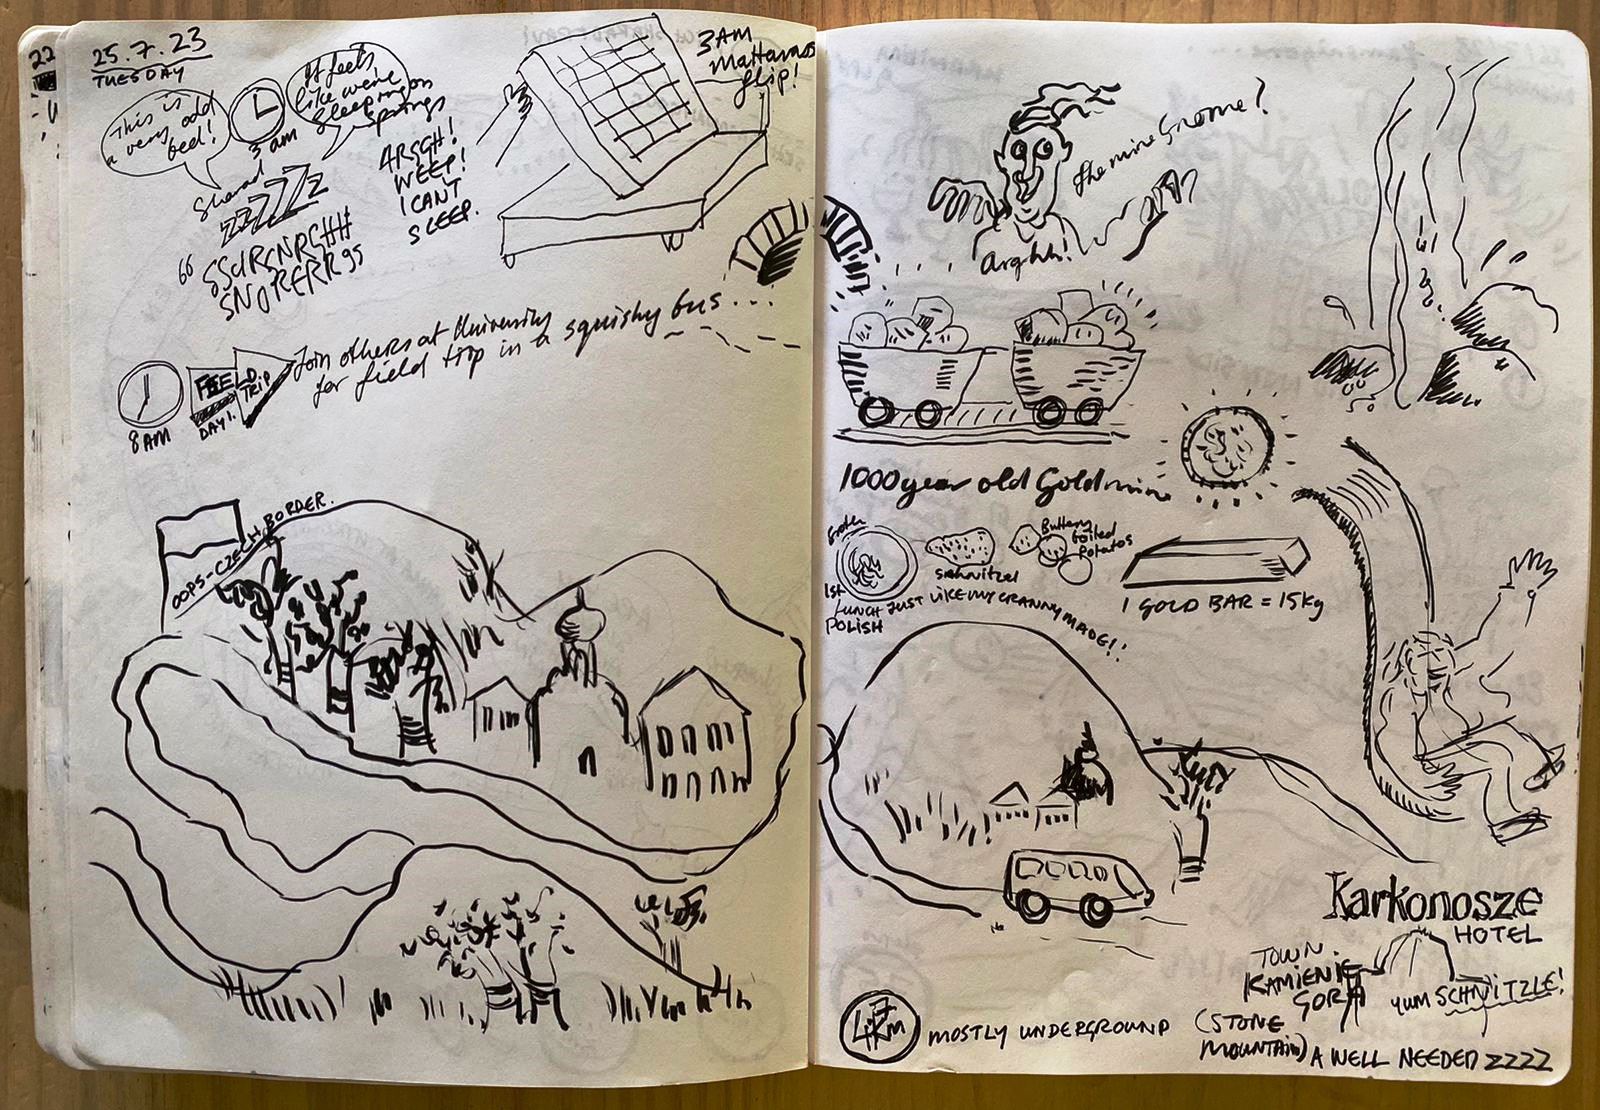 22
25.7.23
TUESDAY
This is
a very odd
bed!
3 am
It feels
like we're
sleeping on
springs
Shared
ZZZZZZ
"SSURGNRGHH
SNORERR"
ARGGH!
WEEP!
I CAN'T
SLEEP.
3AM
Mattarass
flip!
8AM
FIELD
TRIP
DAY 1.
Join others at University
for field trip in a squishy bus...
OOPS-CZECH BORDER.
The mine Gnome?
Arghh!
1000 year old Goldmine
1st
POLISH
LUNCH JUST LIKE MY GRANNY MADE!!
schnitzel
Buttery
boiled
Potatos
1 GOLD BAR = 15kg
Karkonosze
HOTEL
TOWN.
KAMIENIE
GORA
(STONE
MOUNTAIN)
YUM SCHNITZLE!
A WELL NEEDED ZZZZ
MOSTLY UNDERGROUND